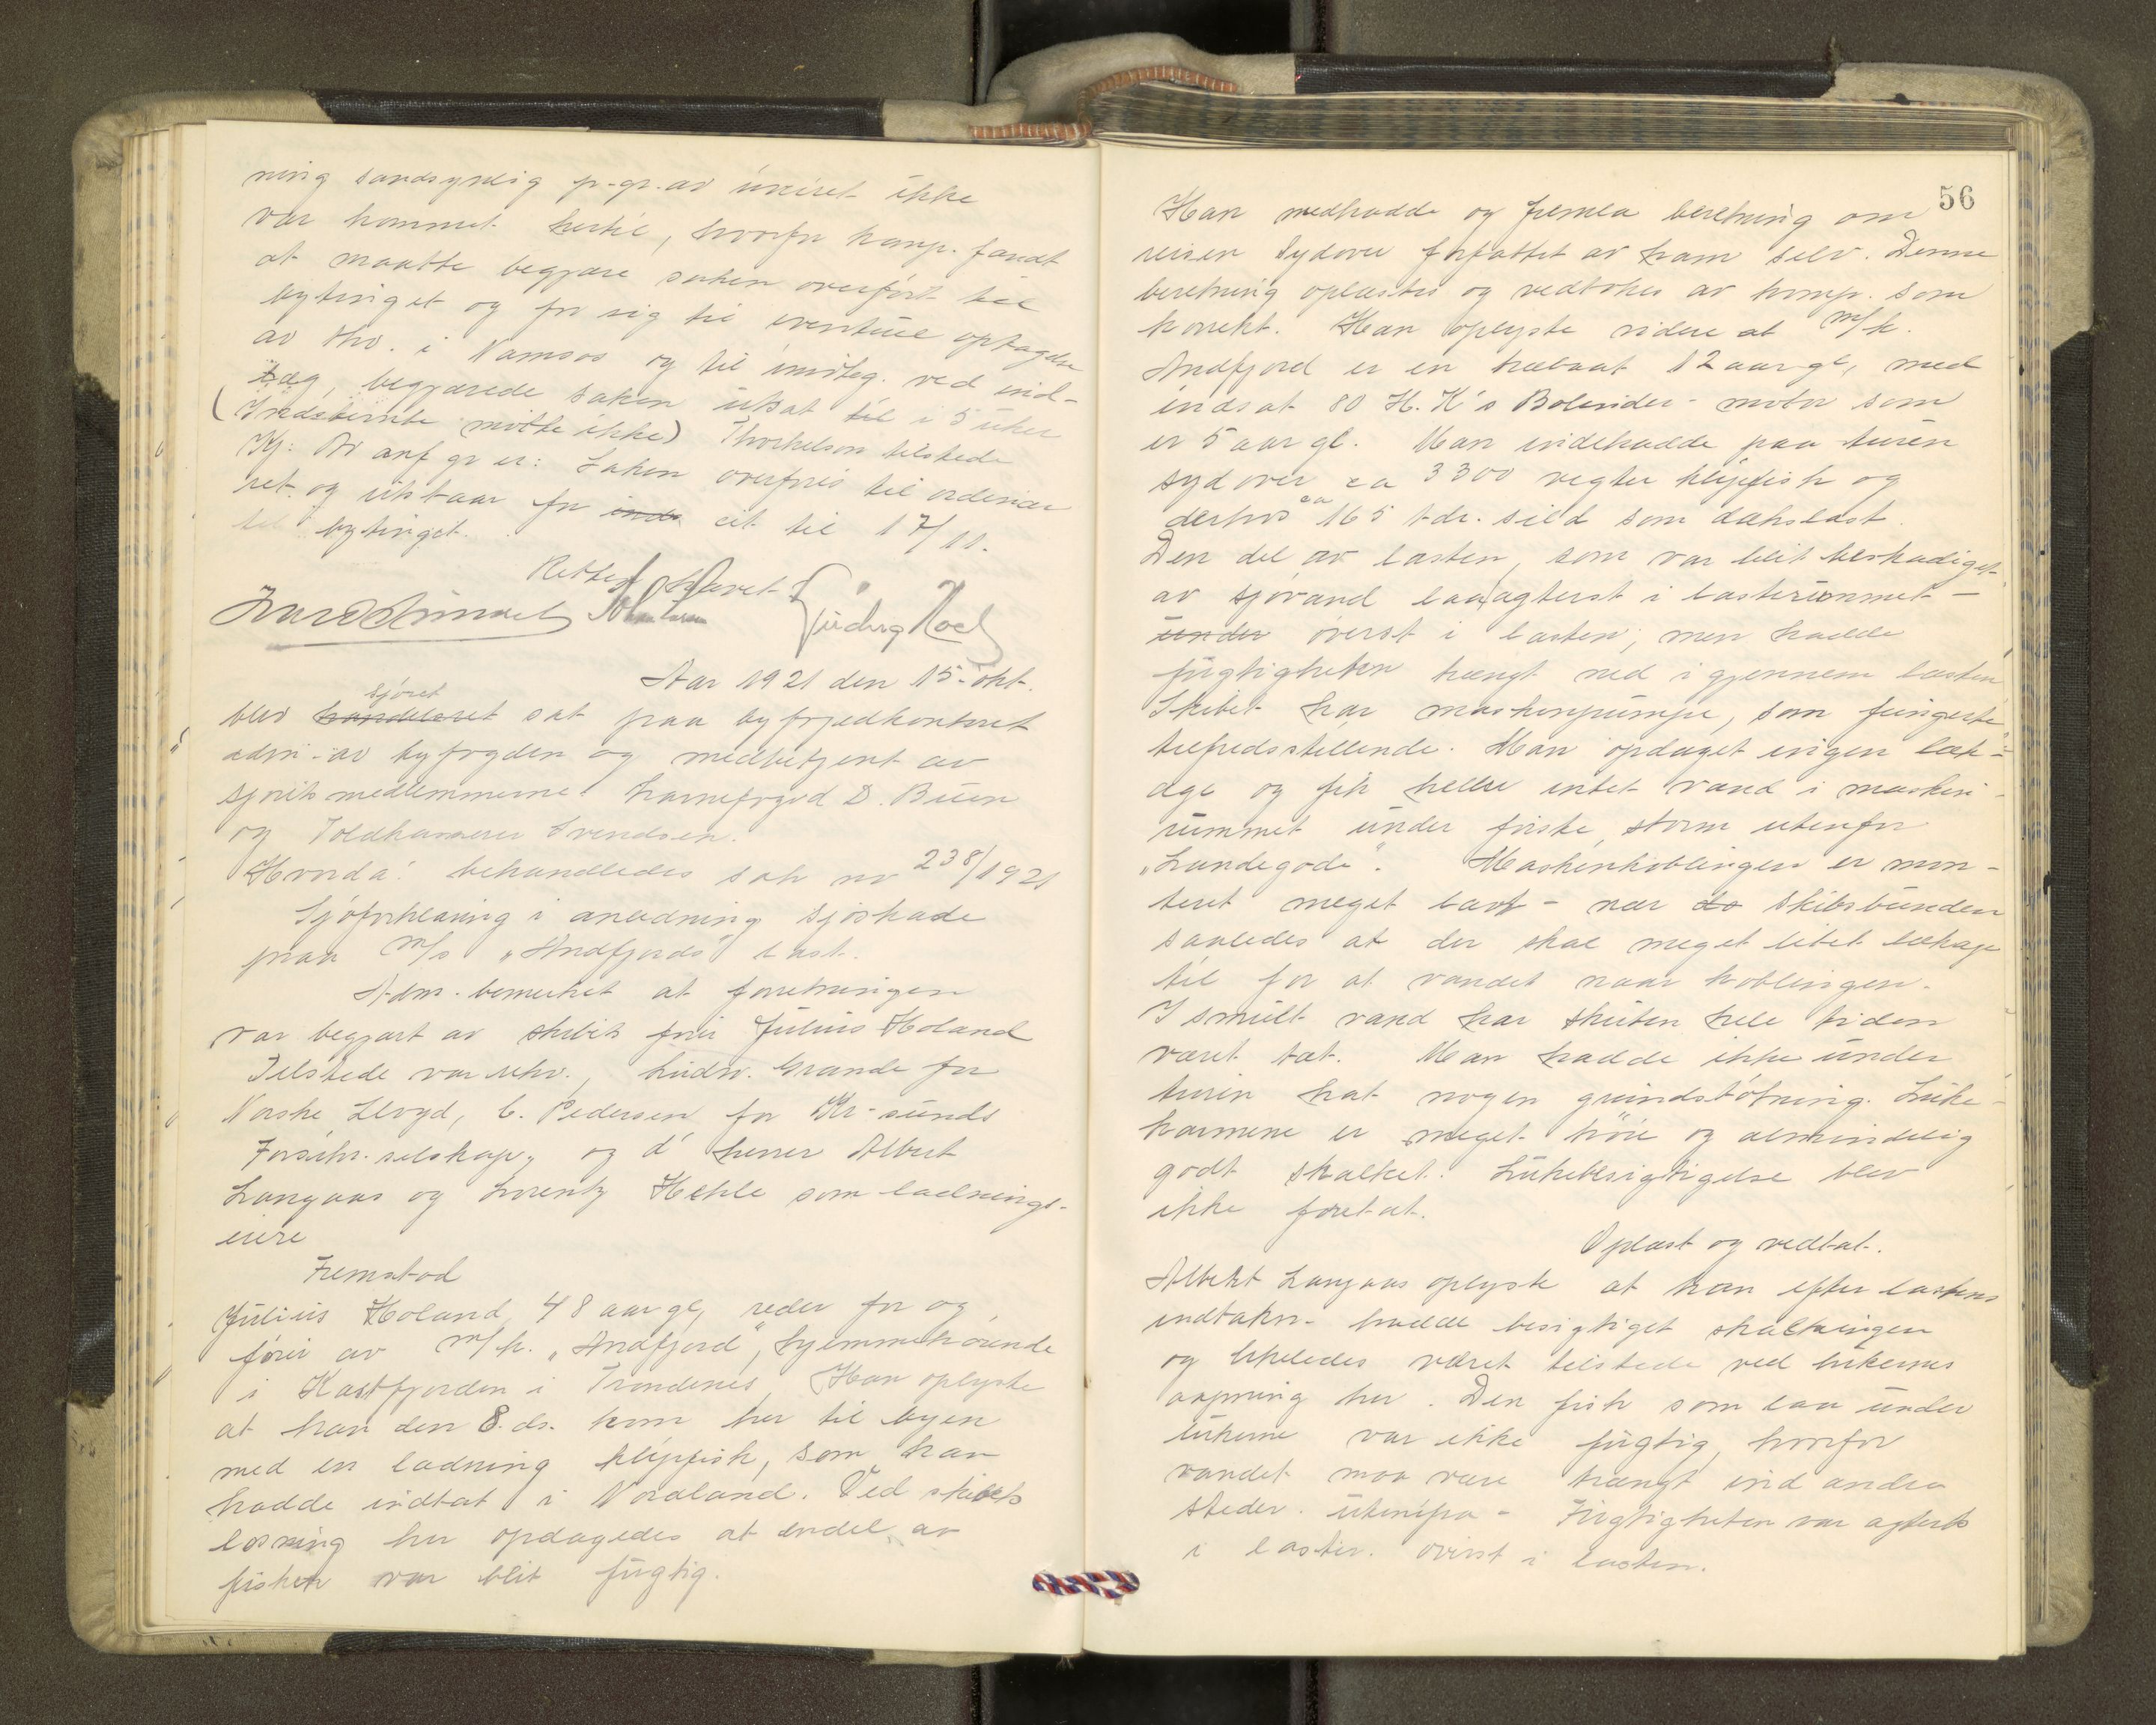 ning sandsynlig p.gr. av uveiret ikke
var kommet hertil, hvorfor komp. fandt
at maatte begjære saken overført til
bytinget og for sig til eventuel optagelse
av thv. i Namsos og til imøteg. ved ind-
læg, begjærede saken utsat til i 5 uker
(Indstevnte møtte ikke) Thorkelson tilstede
Kj: Av anf gr er: Saken overføres til ordinær
ret og utstaar for inds cit til 17/11.
til bytinget.
Retten hævet
Aar 1921 den 15. okt.
sjøret
blev handelsret sat paa byfogedkontoret
adm. av byfogden og medbetjent av
sjøretsmedlemmerne: havnefoged D. Buen
og Toldkasserer Svendsen.
Hvorda: behandledes sak nr 238/1921
Sjøforklaring i anledning sjøskade
paa m/s "Andfjords" last.
Adm. bemerket at forretningen
var begjært av skibets fører Julius Holand
Tilstede var rhv., Ludv. Grande for
Norske Lloyd, C. Pedersen for Kr-sunds
Forsikr. selskap, og d' herrer Albert
Langaas og Lorentz Hehle som ladnings-
eiere
Fremstod
Julius Holand 48 aar gl, reder for og
fører av m/k. "Andfjord", hjemmehørende
i Kastfjorden i Trondenes. Han oplyste
at han den 8. ds. kom her til byen
med en ladning klipfisk, som han
hadde indtat i Nordland. Ved skibets
losning her opdagedes at endel av
fisken var blit fugtig.
56
Han medhadde og fremla beretning om
reisen sydover forfattet av ham selv. Denne
beretning oplæstes og vedtokes av komp. som
korrekt. Han oplyste videre at m/k.
Andfjord er en træbaat 12 aar gl, med
indsat 80 H.K's Bolinder-motor som
er 5 aar gl. Man indehadde paa turen
sydover ca 3300 vegter klipfisk og
derhos ca 165 tdr. sild som dækslast.
Den del av lasten, som var blit beskadiget
av sjøvand laa agterst i lasterummet -
under øverst i lasten; men hadde
fugtigheten trængt ned igjennem lasten
Skibet har maskinpumpe, som fungerte
tilfredsstillende. Man opdaget ingen læk-
age og fik heller intet vand i maskin-
rummet under første storm utenfor
"Landegode". Maskinkoblingen er mon-
teret meget lavt - nær do skibsbunden
saaledes at der skal meget litet lækage
til for at vandet naar koblingen.
I smult vand har skuten hele tiden
været tæt. Man hadde ikke under
turen hat nogen grundstøtning. Luke-
karmene er meget høie og almindelig
godt skalket. Lukebesigtigelse blev
ikke foretat.
Oplæst og vedtat.
Albert Langaas oplyste at han efter lastens
indtakn. hadde besigtiget skalkningen
og likeledes været tilstede ved lukernes
aapning her. Den fisk som laa under
lukerne var ikke fugtig, hvorfor
vandet maa være trængt ind andre
steder utenifra - Fugtigheten var agterst
i lasten. øverst i lasten.